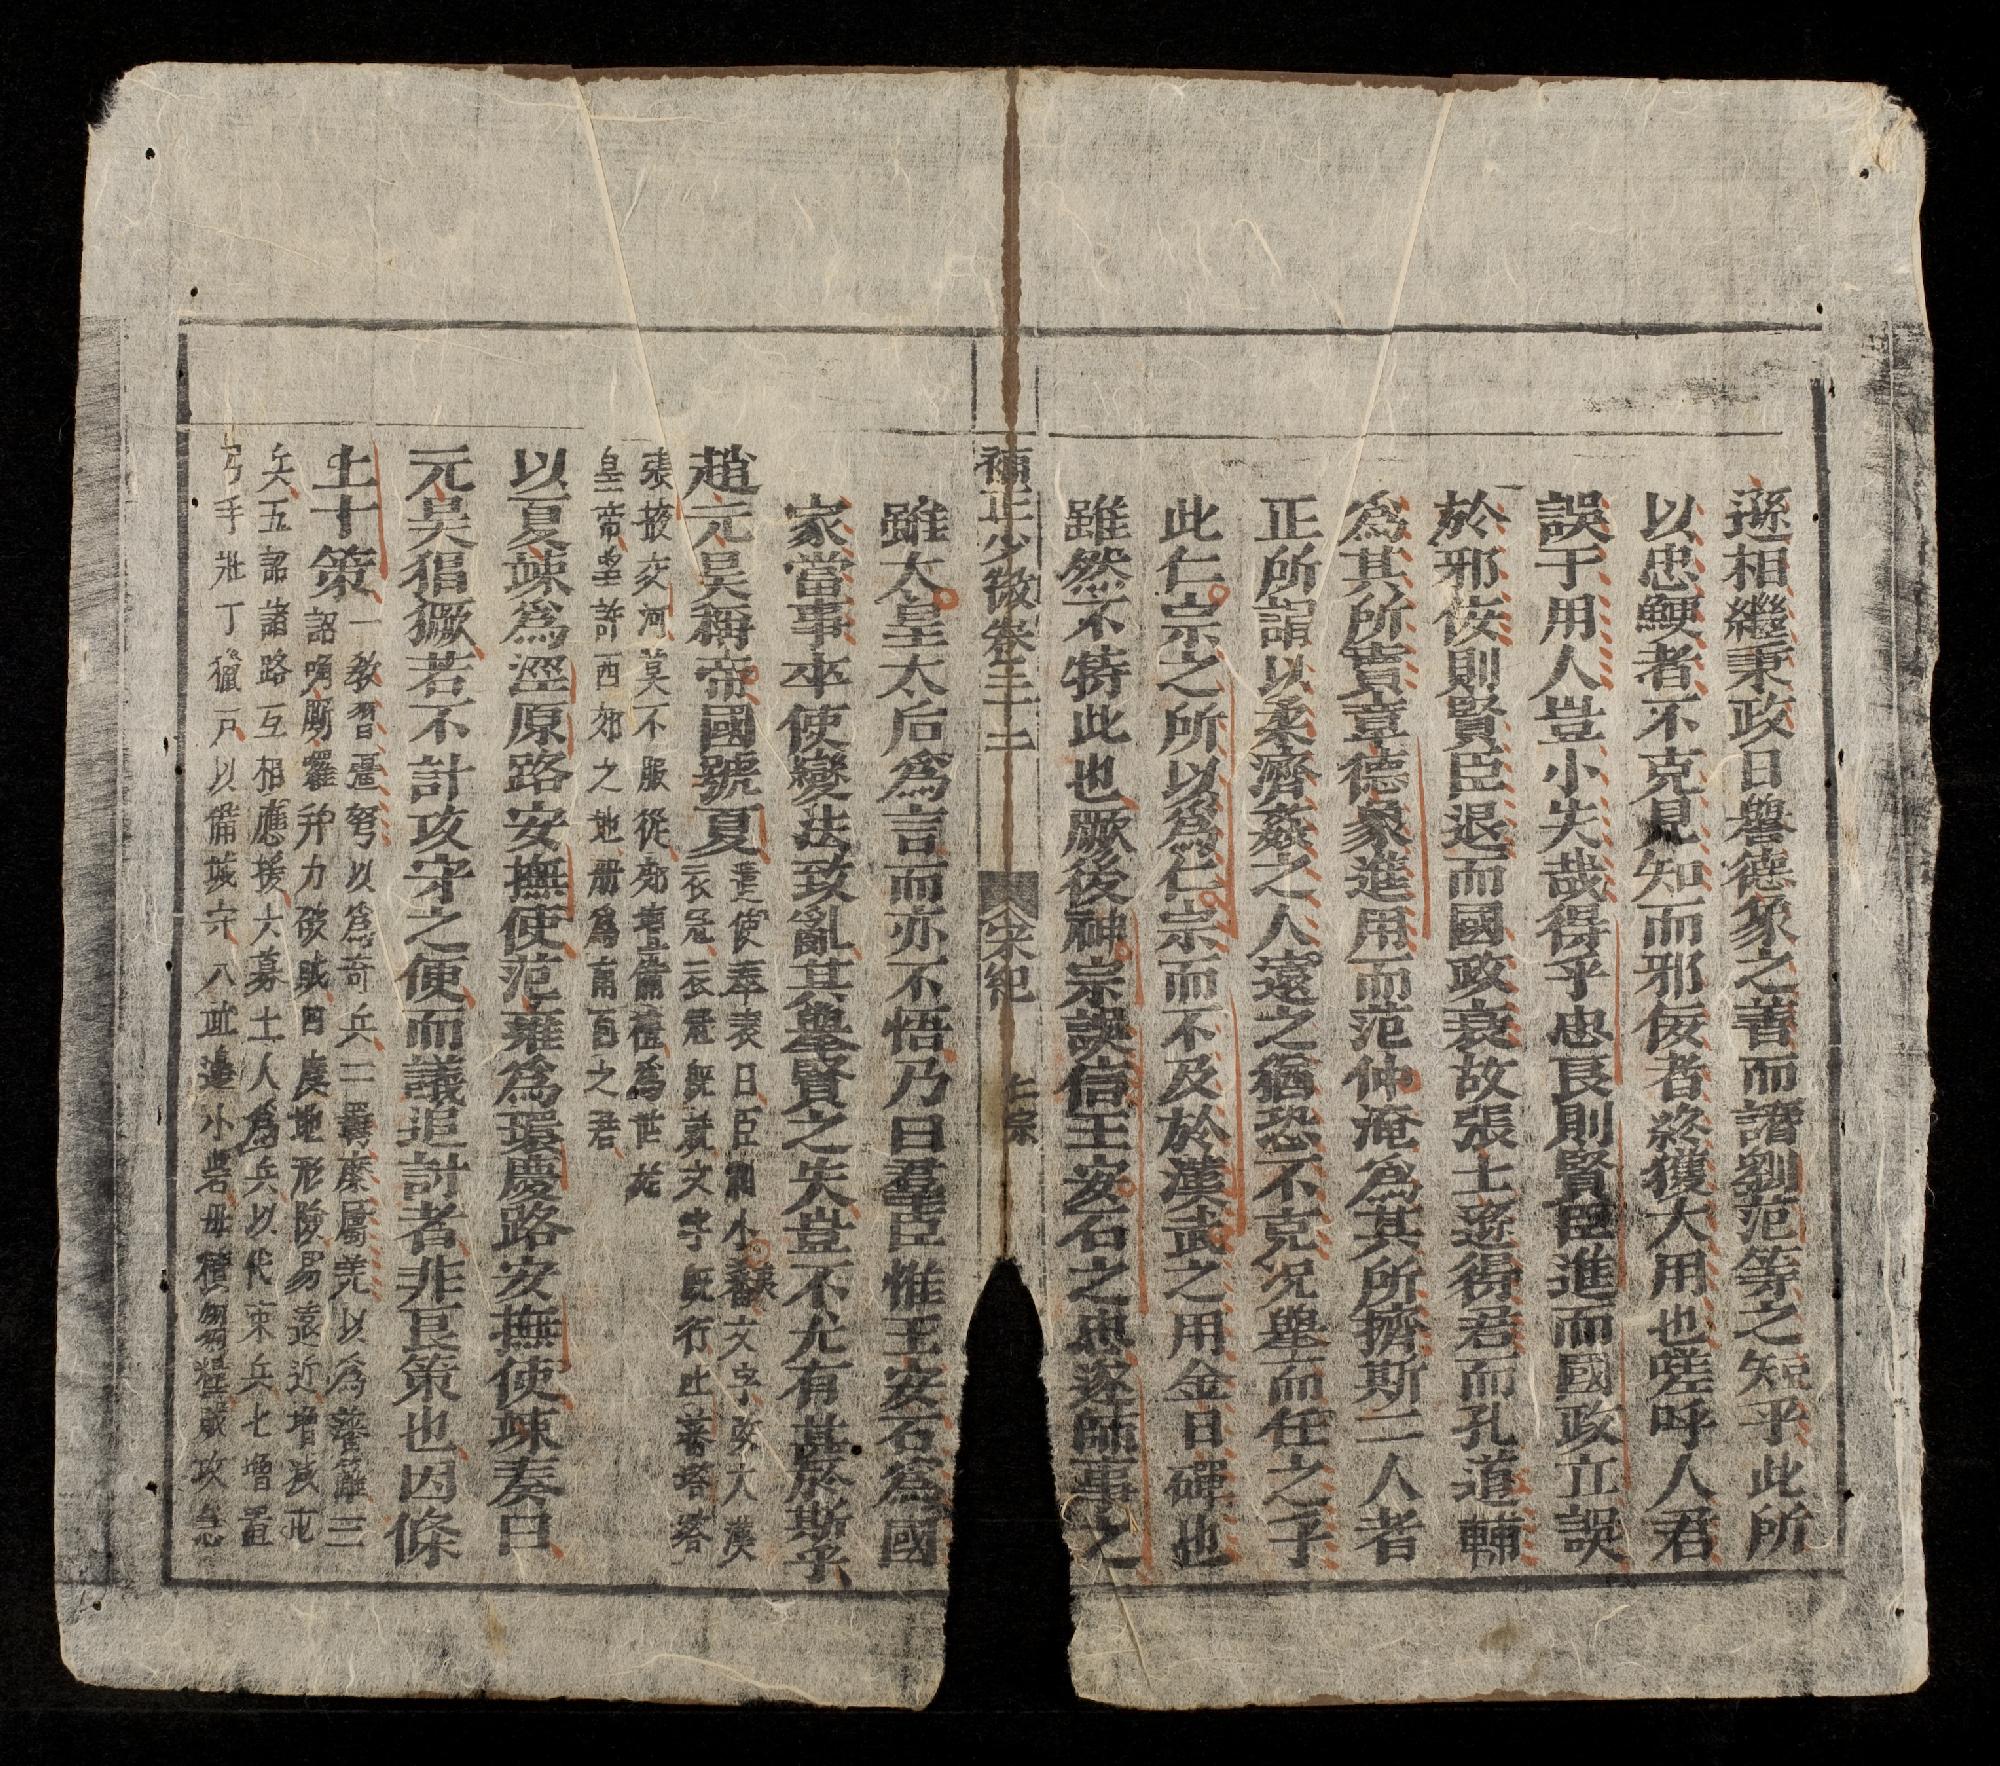 遜相繼秉政日譽德象之善而譖劉范等之短乎此所
以忠鯁者不克見知而邪佞者終獲大用也嗟呼人君
誤于用人豈小失哉得乎忠良則賢臣進而國政立誤
於邪佞則賢臣退而國政衰故張士遜得君而孔道輔
爲其所賣章德象進用而范仲淹爲其所擠斯二人者
正所謂以柔濟姦之人遠之猶恐不克况舉而任之乎
此仁宗之所以爲仁宗而不及於漢武之用金日磾也
雖然不特此也厥後神宗誤信王安石之忠逐師事之
補正少微卷三十二 宋紀 仁宗
雖太皇太后爲言而亦不悟乃曰羣臣惟王安石爲國
家當事卒使變法致亂其舉賢之失豈不尤有甚於斯乎
趙元昊稱帝國號夏
遣使奉表曰臣制小蕃文字改大漢
衣冠衣冠既就文字既行吐蕃塔塔
張掖交河莫不服從郊壇備禮爲世
皇帝望許西郊之地册爲南面之君
以夏竦爲涇原路安撫使范雍爲環慶路安撫使竦奏曰
元昊猖獗若不計攻守之便而議追討者非良策也因條
上十策
一敎習彊弩以爲奇兵二羈縻屬羌以爲藩籬三
詔唃厮囉并力破賊四度地形險易遠近增減屯
兵五詔諸路互相應援六募土人爲兵以代東兵七增置
弓手壯丁獵戸以備城守八並邊小砦毋積芻糧賊攻急